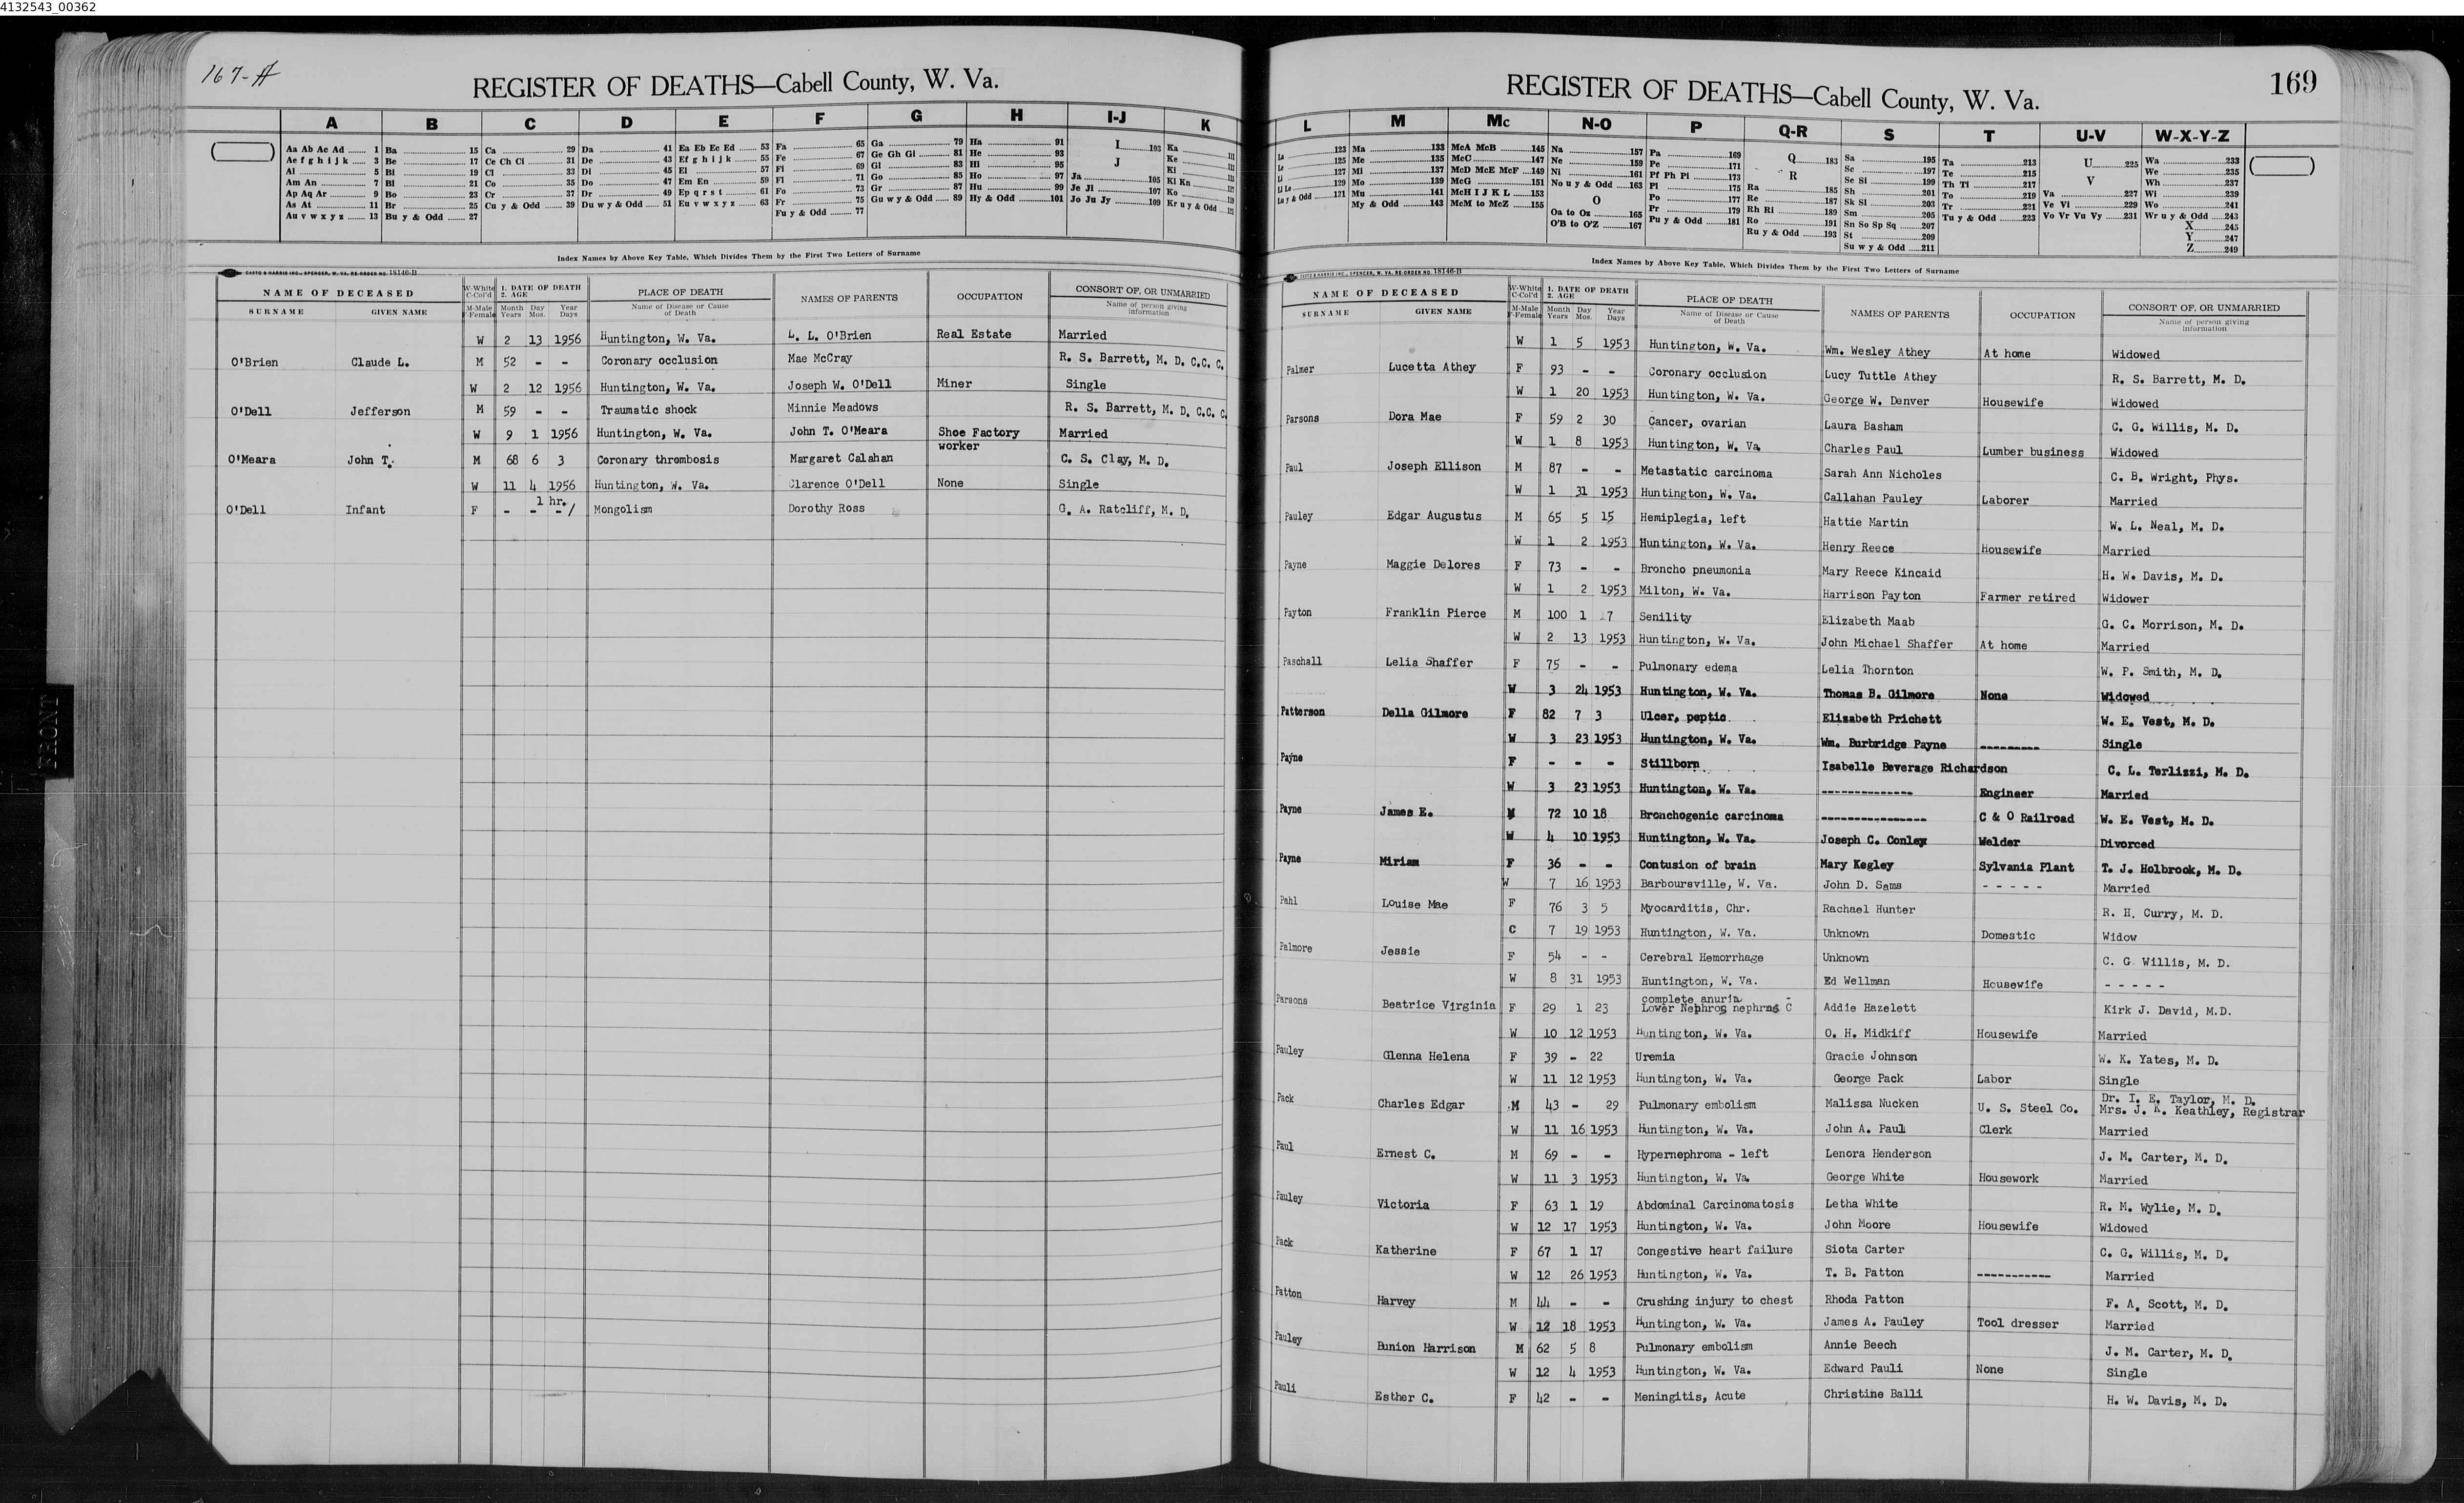 4132543_00362
167-A
REGISTER OF DEATHS—Cabell County, W. Va.
A B C D E F G H I-J K
Aa Ab Ac Ad 1 Ba 15 Ca 29 Da 41 Ea Eb Ec Ed 53 Fa 65 Ga 79 Ha 91 I 103 Ka
Ae f g h i j k 3 Be 17 Ce Ch Ci 31 De 43 Ef g h i j k 55 Fe 67 Ge Gh Gi 81 He 93 J Ke
Al 5 Bi 19 Cl 33 Di 45 El 57 Fi 69 Gl 83 Hi 95 Ki
Am An 7 Bl 21 Co 35 Do 47 Em En 59 Fl 71 Go 85 Ho 97 Ja 105 Kl Kn
Ap Aq Ar 9 Bo 23 Cr 37 Dr 49 Ep q r s t 61 Fo 73 Gr 87 Hu 99 Je Ji 107 Ko
As At 11 Br 25 Cu y & Odd 39 Du w y & Odd 51 Eu v w x y z 63 Fr 75 Gu w y & Odd 89 Hy & Odd 101 Jo Ju Jy 109 Kr u y & Odd
Au v w x y z 13 Bu y & Odd 27 Fu y & Odd 77
Index Names by Above Key Table, Which Divides Them by the First Two Letters of Surname
CASTO & HARRIS INC., SPENCER, W. VA. RE-ORDER NO. 18146-B
NAME OF DECEASED W-White C-Col'd 1. DATE OF DEATH 2. AGE PLACE OF DEATH NAMES OF PARENTS OCCUPATION CONSORT OF, OR UNMARRIED
SURNAME GIVEN NAME M-Male F-Female Month Years Day Mos. Year Days Name of Disease or Cause of Death Name of person giving information
W 2 13 1956 Huntington, W. Va. L. L. O'Brien Real Estate Married
O'Brien Claude L. M 52 - - Coronary occlusion Mae McCray R. S. Barrett, M. D. C.C. C.
W 2 12 1956 Huntington, W. Va. Joseph W. O'Dell Miner Single
O'Dell Jefferson M 59 - - Traumatic shock Minnie Meadows R. S. Barrett, M. D. C.C. C.
W 9 1 1956 Huntington, W. Va. John T. O'Meara Shoe Factory Married
worker
O'Meara John T. M 68 6 3 Coronary thrombosis Margaret Calahan C. S. Clay, M. D.
W 11 4 1956 Huntington, W. Va. Clarence O'Dell None Single
1 hr.
O'Dell Infant F - - -/ Mongolism Dorothy Ross G. A. Ratcliff, M. D.
FRONT
REGISTER OF DEATHS—Cabell County, W. Va.
169
L M Mc N-O P Q-R S T U-V W-X-Y-Z
La 123 Ma 133 McA McB 145 Na 157 Pa 169 Q 183 Sa 195 Ta 213 U 225 Wa 233
Le 125 Me 135 McC 147 Ne 159 Pe 171 R Sc 197 Te 215 V We 235
Li 127 Mi 137 McD McE McF 149 Ni 161 Pf Ph Pi 173 Ra 185 Se Si 199 Th Ti 217 Va 227 Wh 237
Ll Lo 129 Mo 139 McG 151 No u y & Odd 163 Pl 175 Re 187 Sh 201 To 219 Ve Vi 229 Wi 239
Lu y & Odd 131 Mu 141 McH I J K L 153 O Po 177 Rh Ri 189 Sk Sl 203 Tr 221 Vo Vr Vu Vy 231 Wo 241
My & Odd 143 McM to McZ 155 Oa to Oz 165 Pr 179 Ro 191 Sm 205 Tu y & Odd 223 Wr u y & Odd 243
O'B to O'Z 167 Pu y & Odd 181 Ru y & Odd 193 Sn So Sp Sq 207 X 245
St 209 Y 247
Su w y & Odd 211 Z 249
Index Names by Above Key Table, Which Divides Them by the First Two Letters of Surname
CASTO & HARRIS INC., SPENCER, W. VA. RE-ORDER NO. 18146-B
NAME OF DECEASED W-White C-Col'd 1. DATE OF DEATH 2. AGE PLACE OF DEATH NAMES OF PARENTS OCCUPATION CONSORT OF, OR UNMARRIED
SURNAME GIVEN NAME M-Male F-Female Month Years Day Mos. Year Days Name of Disease or Cause of Death Name of person giving information
W 1 5 1953 Huntington, W. Va. Wm. Wesley Athey At home Widowed
Palmer Lucetta Athey F 93 - - Coronary occlusion Lucy Tuttle Athey R. S. Barrett, M. D.
W 1 20 1953 Huntington, W. Va. George W. Denver Housewife Widowed
Parsons Dora Mae F 59 2 30 Cancer, ovarian Laura Basham C. G. Willis, M. D.
W 1 8 1953 Huntington, W. Va Charles Paul Lumber business Widowed
Paul Joseph Ellison M 87 - - Metastatic carcinoma Sarah Ann Nicholes C. B. Wright, Phys.
W 1 31 1953 Huntington, W. Va. Callahan Pauley Laborer Married
Pauley Edgar Augustus M 65 5 15 Hemiplegia, left Hattie Martin W. L. Neal, M. D.
W 1 2 1953 Huntington, W. Va. Henry Reece Housewife Married
Payne Maggie Delores F 73 - - Broncho pneumonia Mary Reece Kincaid H. W. Davis, M. D.
W 1 2 1953 Milton, W. Va. Harrison Payton Farmer retired Widower
Payton Franklin Pierce M 100 1 17 Senility Elizabeth Maab G. C. Morrison, M. D.
W 2 13 1953 Huntington, W. Va. John Michael Shaffer At home Married
Paschall Lelia Shaffer F 75 - - Pulmonary edema Lelia Thornton W. P. Smith, M. D.
W 3 24 1953 Huntington, W. Va. Thomas B. Gilmore None Widowed
Patterson Della Gilmore F 82 7 3 Ulcer, peptic Elizabeth Prichett W. E. Vest, M. D.
W 3 23 1953 Huntington, W. Va. Wm. Burbridge Payne --------- Single
Payne F - - - Stillborn Isabelle Beverage Richardson C. L. Terlizzi, M. D.
W 3 23 1953 Huntington, W. Va. -------------- Engineer Married
Payne James E. M 72 10 18 Bronchogenic carcinoma ---------------- C & O Railroad W. E. Vest, M. D.
W 4 10 1953 Huntington, W. Va. Joseph C. Conley Welder Divorced
Payne Miriam F 36 - - Contusion of brain Mary Kegley Sylvania Plant T. J. Holbrook, M. D.
W 7 16 1953 Barboursville, W. Va. John D. Sams - - - - - Married
Pahl Louise Mae F 76 3 5 Myocarditis, Chr. Rachael Hunter R. H. Curry, M. D.
C 7 19 1953 Huntington, W. Va. Unknown Domestic Widow
Palmore Jessie F 54 - - Cerebral Hemorrhage Unknown C. G Willis, M. D.
W 8 31 1953 Huntington, W. Va. Ed Wellman Housewife - - - - -
complete anuria -
Parsons Beatrice Virginia F 29 1 23 Lower Nephros nephras C Addie Hazelett Kirk J. David, M.D.
W 10 12 1953 Huntington, W. Va. O. H. Midkiff Housewife Married
Pauley Glenna Helena F 39 - 22 Uremia Gracie Johnson W. K. Yates, M. D.
W 11 12 1953 Huntington, W. Va. George Pack Labor Single
Dr. I. E. Taylor, M. D.
Pack Charles Edgar M 43 - 29 Pulmonary embolism Malissa Nucken U. S. Steel Co. Mrs. J. K. Keathley, Registrar
W 11 16 1953 Huntington, W. Va. John A. Paul Clerk Married
Paul Ernest C. M 69 - - Hypernephroma - left Lenora Henderson J. M. Carter, M. D.
W 11 3 1953 Huntington, W. Va. George White Housework Married
Pauley Victoria F 63 1 19 Abdominal Carcinomatosis Letha White R. M. Wylie, M. D.
W 12 17 1953 Huntington, W. Va. John Moore Housewife Widowed
Pack Katherine F 67 1 17 Congestive heart failure Siota Carter C. G. Willis, M. D.
W 12 26 1953 Huntington, W. Va. T. B. Patton ----------- Married
Patton Harvey M 44 - - Crushing injury to chest Rhoda Patton F. A. Scott, M. D.
W 12 18 1953 Huntington, W. Va. James A. Pauley Tool dresser Married
Pauley Bunion Harrison M 62 5 8 Pulmonary embolism Annie Beech J. M. Carter, M. D.
W 12 4 1953 Huntington, W. Va. Edward Pauli None Single
Pauli Esther C. F 42 - - Meningitis, Acute Christine Balli H. W. Davis, M. D.